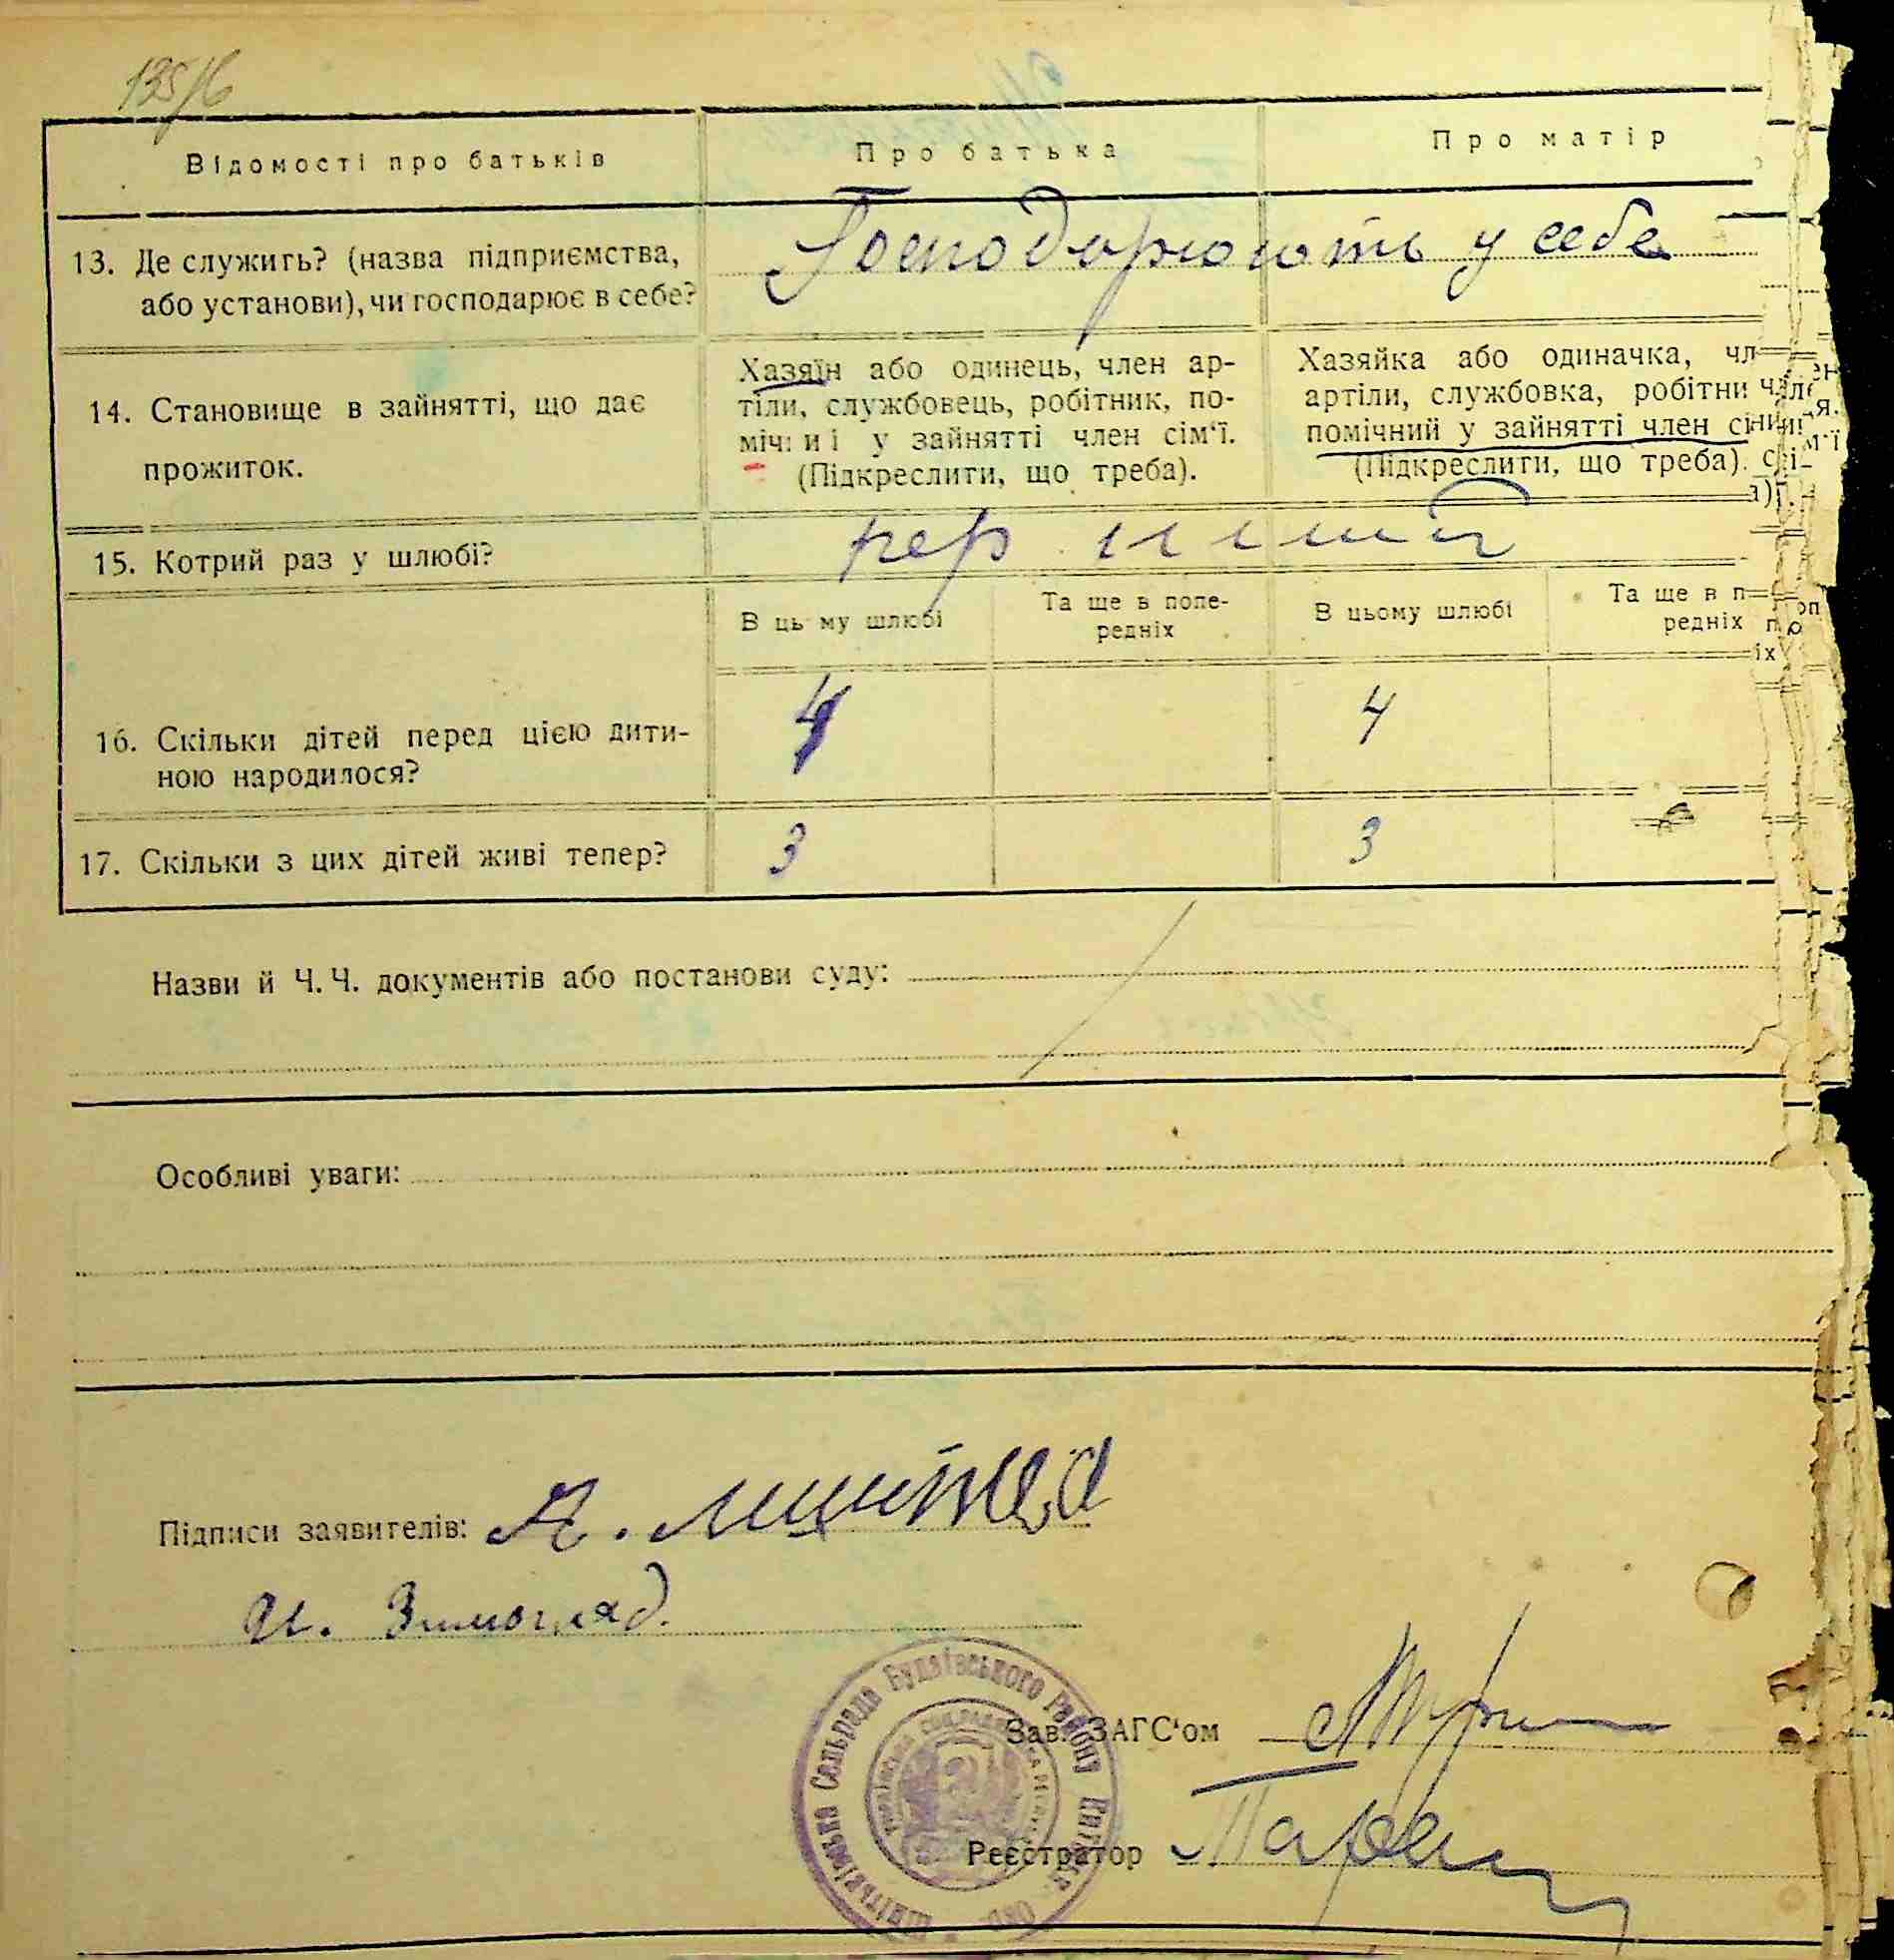 135/6
Відомості про батьків
Про батька
Про матір
13. Де служить? (назва підприємства,
або установи), чи господарює в себе?
Господорюють у себе
14. Становище в зайнятті, що дає
прожиток.
Хазяїн або одинець, член ар-
тіли, службовець, робітник, по-
міч и і у зайнятті член сім'ї.
(Підкреслити, що треба).
Хазяйка або одиначка, чл
артіли, службовка, робітни
помічний у зайнятті член сі
(Підкреслити, що треба).
15. Котрий раз у шлюбі?
перший
В ць му шлюбі
Та ще в попе-
редніх
В цьому шлюбі
Та ще в п
редніх
16. Скільки дітей перед цією дити-
ною народилося?
4
4
17. Скільки з цих дітей живі тепер?
3
3
Назви й Ч. Ч. документів або постанови суду:
Особливі уваги:
Підписи заявителів:
И. Зимогляд.
Сельрада Будаївського Району
Зав. ЗАГС'ом
Реєстратор